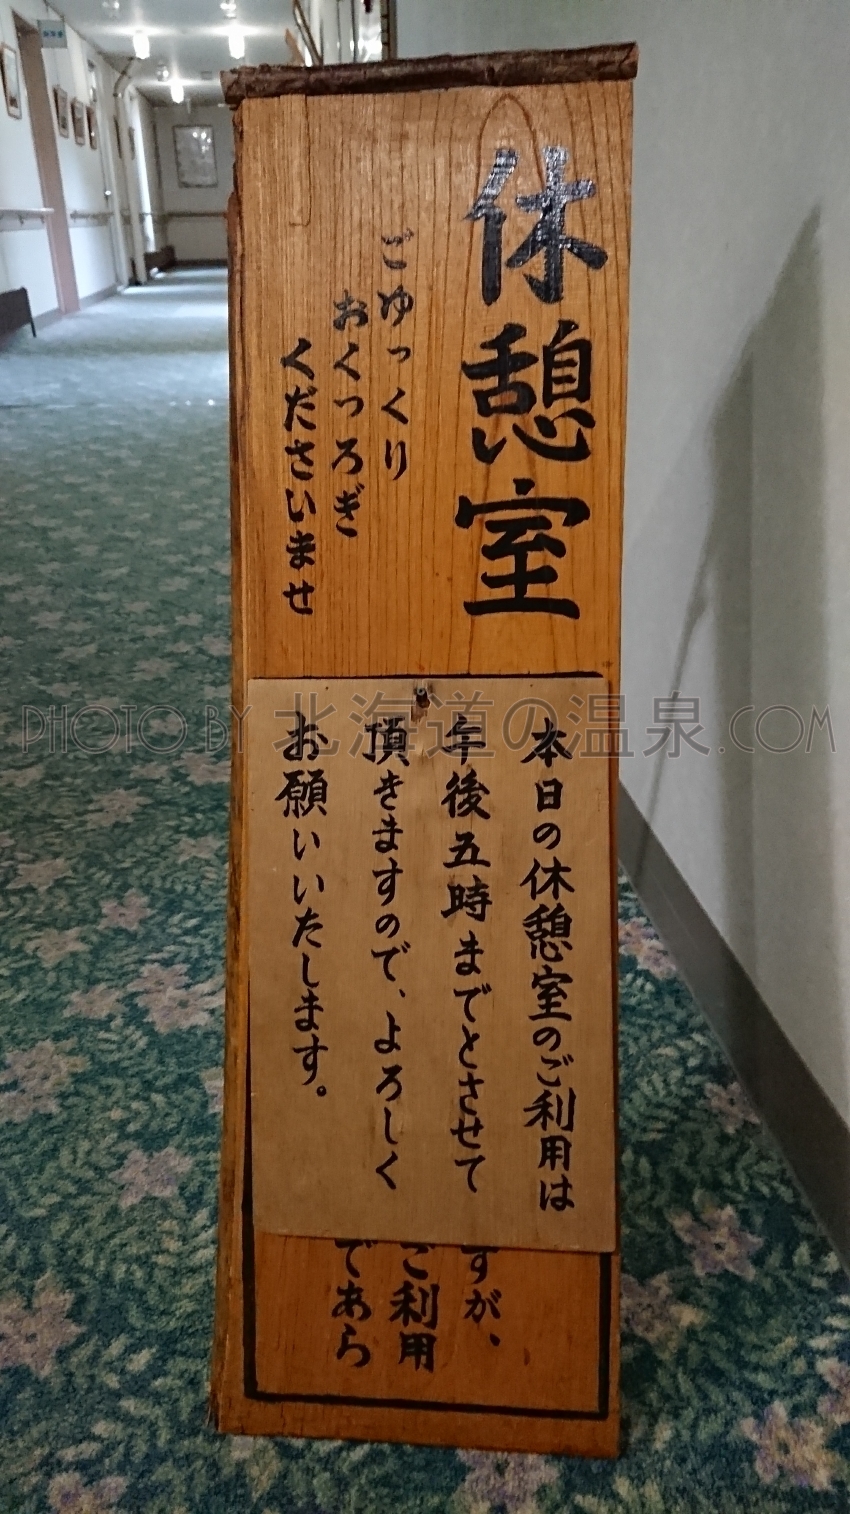 休憩室
ごゆっくり
おくつろぎ
くださいませ
本日の休憩室のご利用は
午後五時までとさせて
頂きますので、よろしく
お願いいたします。
すが、
ご利用
であら
PHOTO BY 北海道の温泉.COM